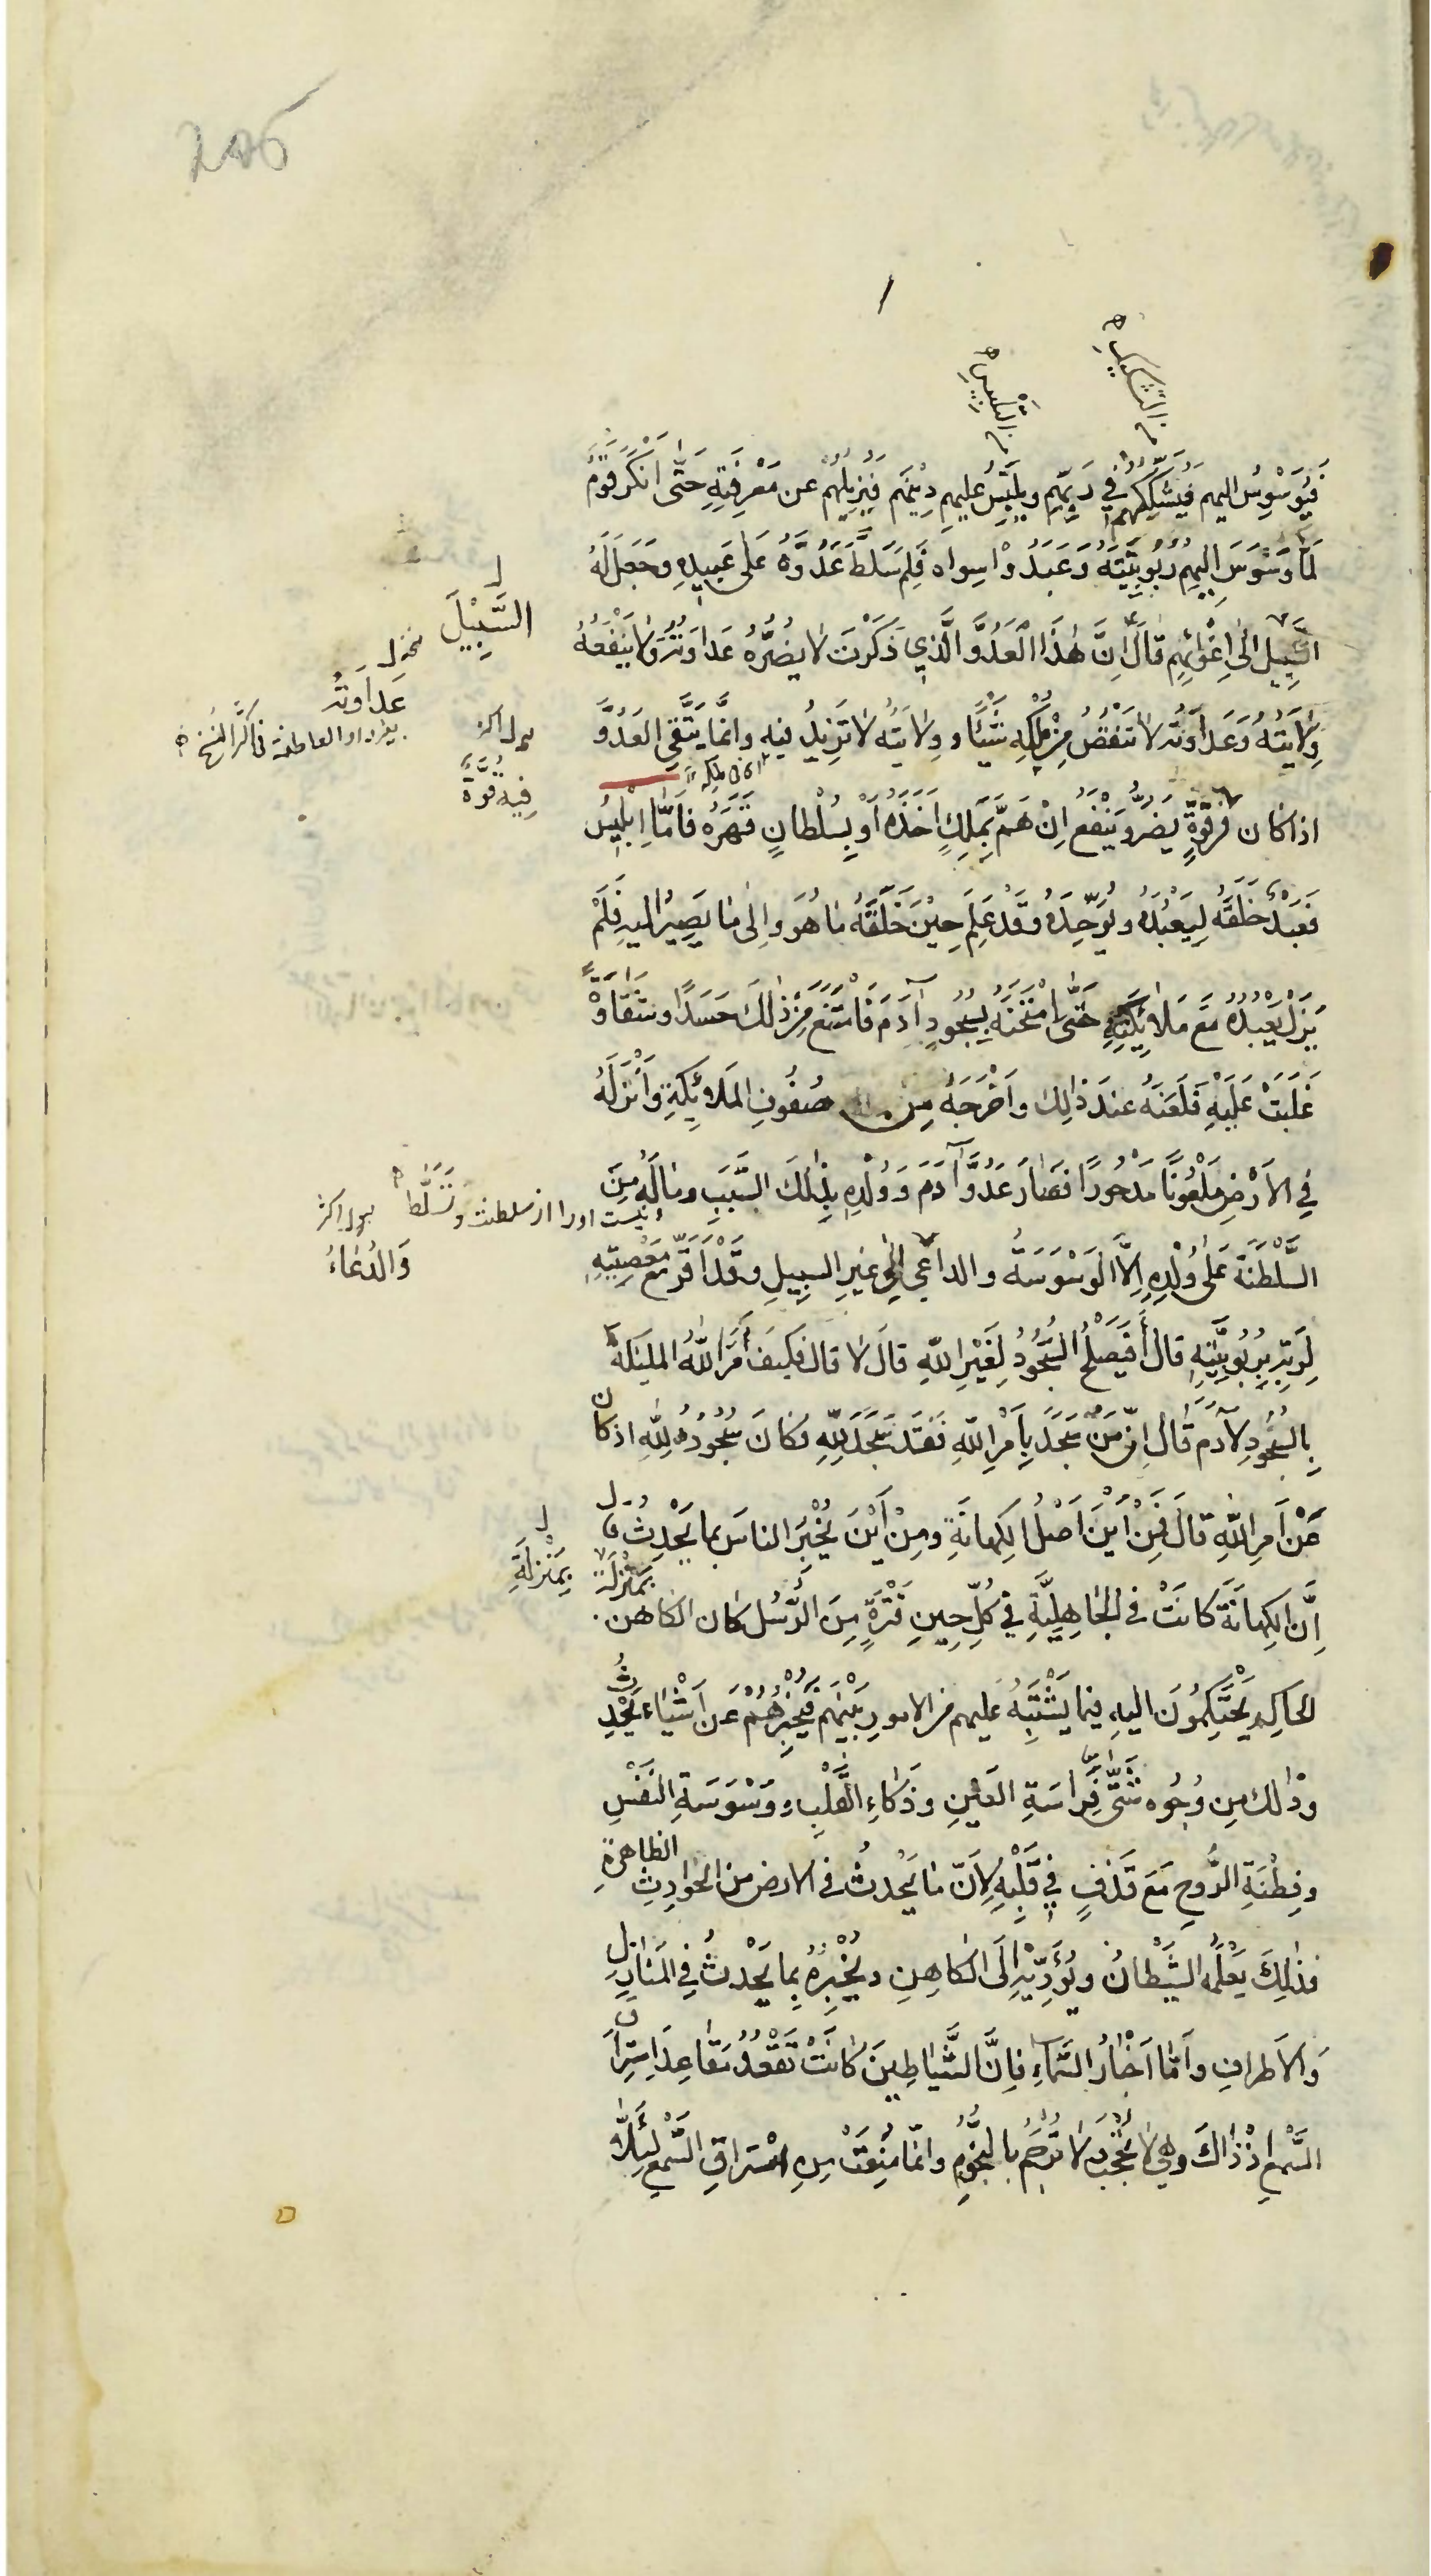 205
من التشكيك
من التلبيس
فَيُوَسْوِسُ اليهم فَيُشَكِّكُهُم في رَبِّهِم ويُلَبِّسُ عليهم دِيْنَهُم فَيُزِيْلُهُم عن مَعْرِفَتِهِ حَتّٰى اَنْكَرَ قَوْمٌ
لَمّا وَسْوَسَ اِلَيهِم رُبُوبِيَّتَهُ وَعَبَدُوْا سِواه فَلِمَ سَلَّطَ عَدُوَّهُ عَلٰى عَبِيدِهِ وَجَعَلَ لَهُ
السَّبِيلَ اِلٰى اِغْوَائِهِم قالَ اِنَّ هٰذَا الْعَدُوَّ الَّذِي ذَكَرْتَ لا يَضُرُّهُ عَدَاوَتُهُ وَلا يَنْفَعُهُ
السَّبِيْلَ
وِلَايَتُهُ وَعَدَاوَتُهُ لا تَنْقُصُ مِنْ مُلْكِهِ شَيْئًا و وِلايَتُهُ لا تَزِيدُ فيه وانَّما يُتَّقَى العَدُوُّ
عَدَاوَتُهُ
بغير داو العاطفة في اكثر النسخ
اذا كان في قُوَّةٍ يَضُرُّ وَيَنْفَعُ اِنْ هَمَّ بِمُلْكٍ اَخَذَهُ اَوْ بِسُلْطانٍ قَهَرَهُ فَاَمَّا اِبْلِيسُ
فِيهِ قُوَّةٌ
فَعَبْدٌ خَلَقَهُ لِيَعْبُدَهُ ويُوَحِّدَهُ وَقَدْ عَلِمَ حِيْنَ خَلَقَهُ مَا هُوَ واِلٰى مَا يَصِيْرُ اليه فَلَمْ
يَزَلْ يَعْبُدُهُ مَعَ مَلائِكَتِهِ حَتَّى امْتَحَنَهُ بِسُجُودِ آدَمَ فَامْتَنَعَ مِنْ ذٰلِكَ حَسَدًا وشَقَاوَةً
غَلَبَتْ عَلَيْهِ فَلَعَنَهُ عندَ ذٰلِك واَخْرَجَهُ مِن صُفُوفِ المَلائِكَةِ وَاَنْزَلَهُ
في الاَرْضِ مَلْعُونًا مَدْحُورًا فَصَارَ عَدُوَّ آدَمَ وَوُلْدِهِ بِذٰلِكَ السَّبَبِ ومَالَهُ مِنَ
نيست اورا از سلطنت وتسلّط
السَّلْطَنَةِ عَلٰى وُلْدِهِ اِلَّا الوَسْوَسَةُ و الداعي اِلٰى غَيرِ السبِيلِ وقَدْ اَقَرَّ مَعَ مَعْصِيَتِهِ
وَالدُعَاءُ
لِرَبِّهِ بِرُبُوبِيَّتِهِ قال أَفَيَصْلُحُ السُّجُودُ لِغَيْرِ اللهِ قالَ لا قال فكَيفَ اَمَرَ اللهُ الملئكةَ
بِالسُّجُودِ لِآدَمَ قَالَ اِنَّ مَنْ سَجَدَ بِاَمْرِ اللهِ فَقَد سَجَدَ لِلّٰهِ فكانَ سُجُودُهُ لِلّٰهِ اذ كان
عَنْ اَمرِ اللهِ قالَ فَمِنْ اَيْنَ اَصْلُ الكِهانَةِ ومِنْ اَيْنَ يُخْبَرُ الناسُ بما يَحْدُثُ قال
اِنَّ الكِهانَةَ كانَتْ فِي الجَاهِلِيَّةِ في كُلِّ حِينِ فَتْرَةٍ مِنَ الرُّسُلِ كان الكاهن بِمَنْزِلَة
بِمَنْزِلَةِ
الحاكِمِ يَحْتَكِمُونَ اليهِ فيما يَشْتَبِهُ عليهم من الامورِ بَيْنَهُم فَيُخْبِرُهُمْ عَن اَشْيَاءَ تَحْدُثُ
وذٰلك مِن وُجُوهٍ شَتّٰى فِرَاسَةِ العَيْنِ وذَكَاءِ القَلْبِ ووَسْوَسَةِ النَفْسِ
وفِطْنَةِ الرُّوحِ مَعَ قَذْفٍ فِي قَلْبِهِ لِاَنَّ مَا يَحْدُثُ فى الارض من الحَوَادِثِ الظاهِرَةِ
فذٰلِكَ يَعْلَمُهُ الشَّيْطانُ ويُؤَدِّيْهِ اِلَى الكَاهِنِ ويُخْبِرُهُ بِما يَحْدُثُ فِي المَنَازِلِ
وَالاَطرافِ واَمّا اَخْبارُ السَّمآءِ فاِنَّ الشَّيَاطِينَ كانَتْ تَقْعُدُ مَقَاعِدَ اِسْتِرَاقِ
السَّمْعِ اِذْ ذَاكَ وهِيَ لا تُحْجَبُ ولا تُرْجَمُ بالنُّجُومِ وانّما مُنِعَتْ مِن اسْتراقِ السَّمعِ لِئَلَّا